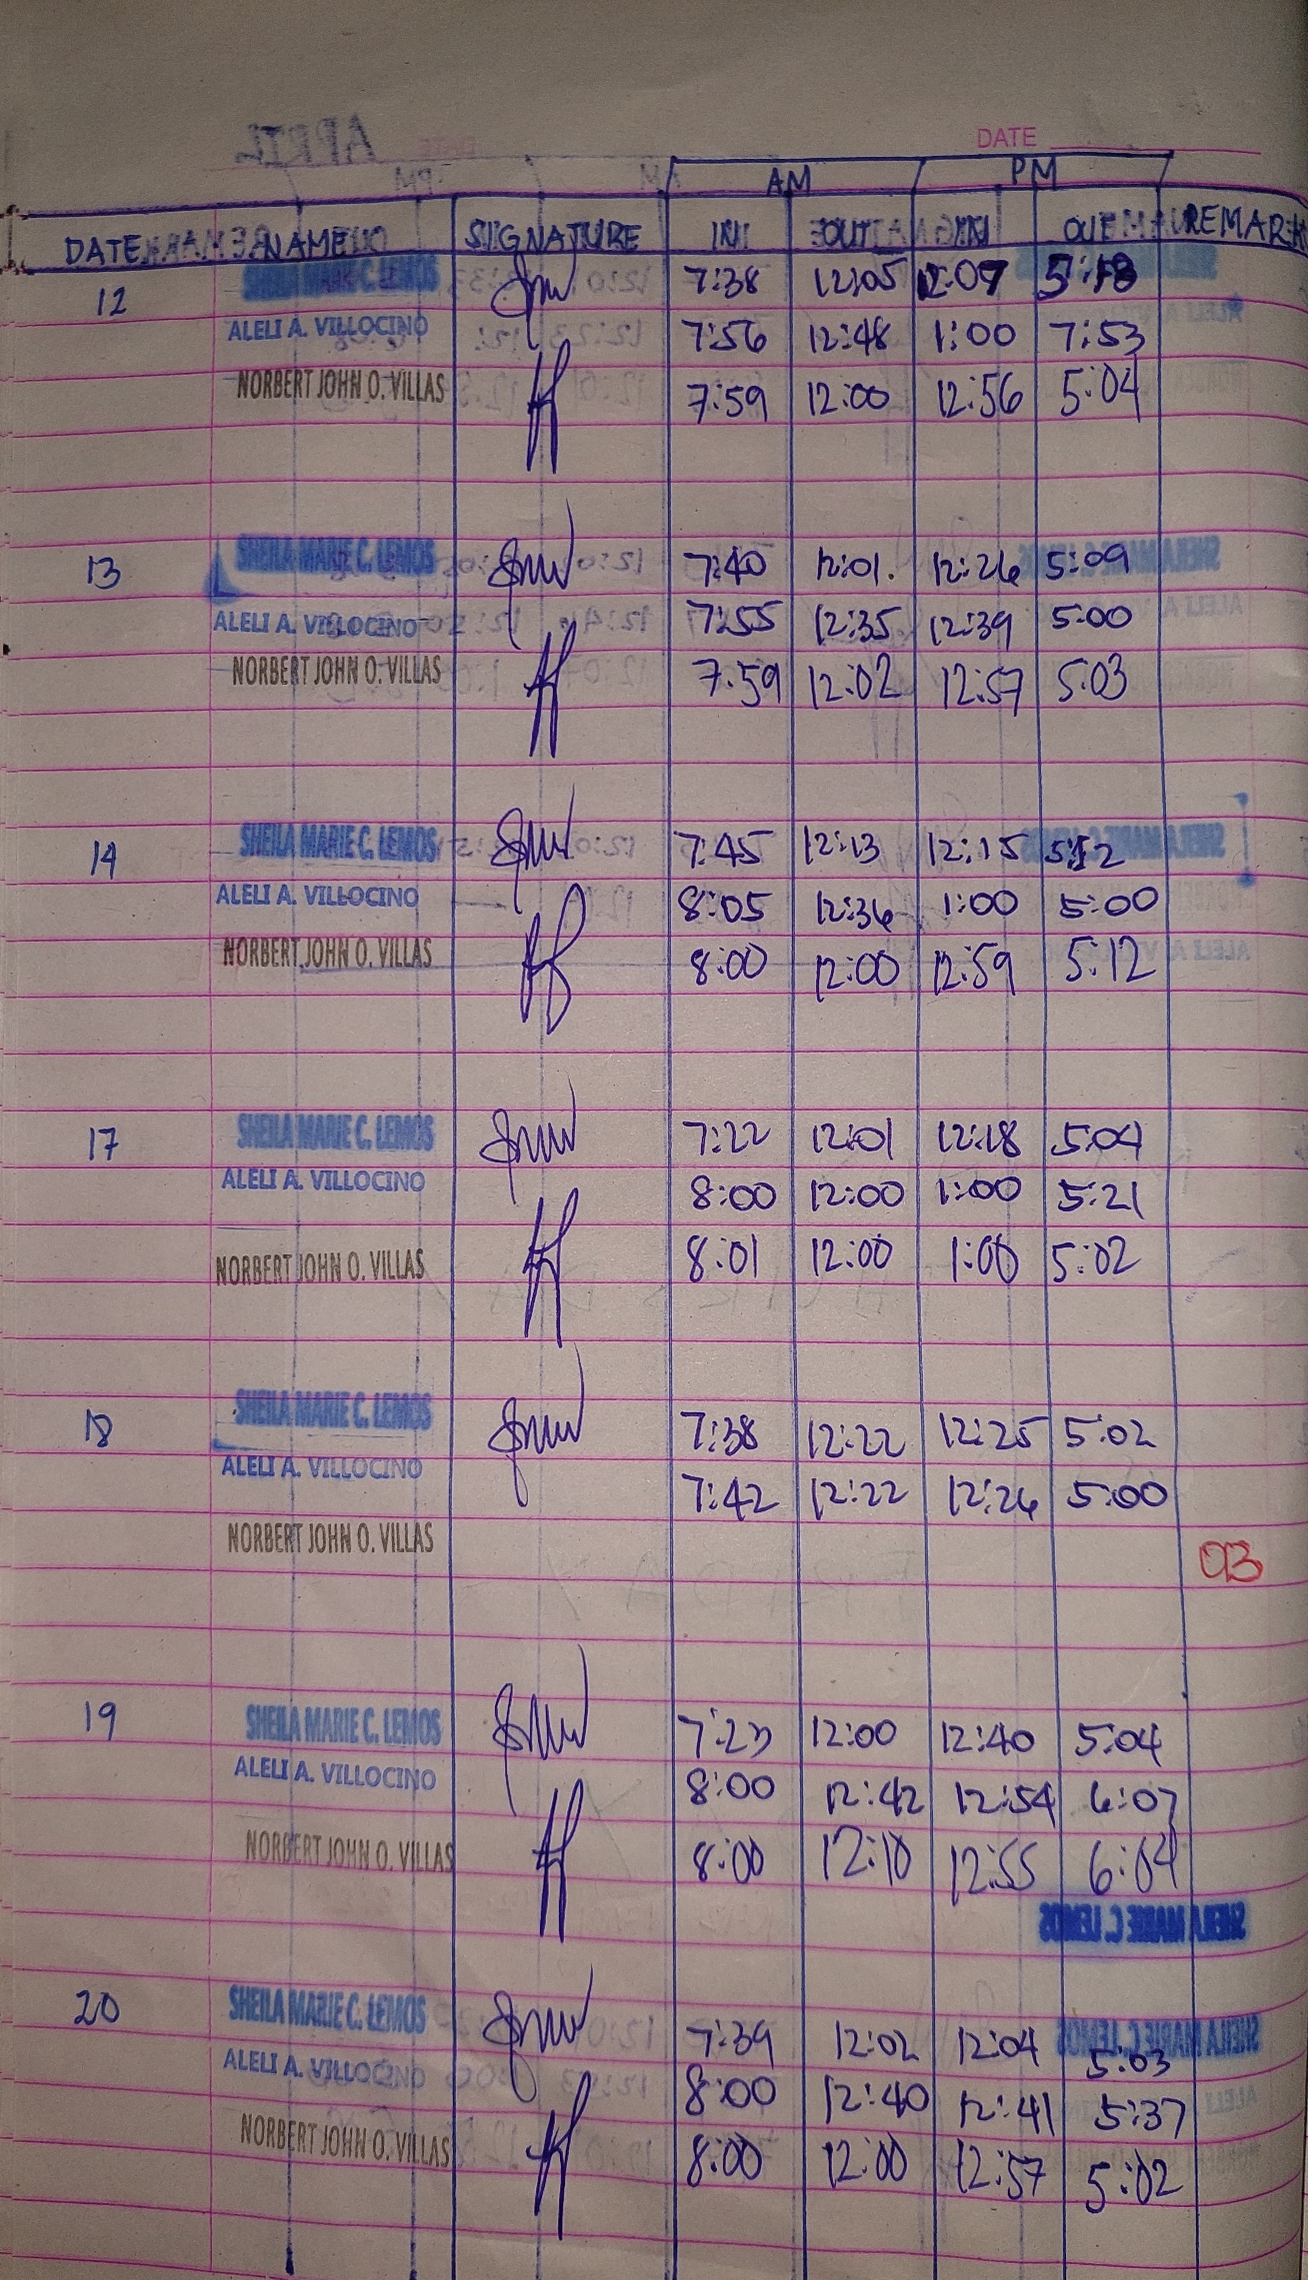 DATE
AM PM
DATE NAME SIGNATURE IN OUT IN OUT REMARK
12 SHEILA MARIE C. LEMOS 7:38 12:05 12:07 5:18
ALELI A. VILLOCINO 7:56 12:48 1:00 7:53
NORBERT JOHN O. VILLAS 7:59 12:00 12:56 5:04
13 SHEILA MARIE C. LEMOS 7:40 12:01. 12:26 5:09
ALELI A. VILLOCINO 7:55 12:35 12:39 5:00
NORBERT JOHN O. VILLAS 7:59 12:02 12:57 5:03
14 SHEILA MARIE C. LEMOS 7:45 12:13 12:15 5:12
ALELI A. VILLOCINO 8:05 12:36 1:00 5:00
NORBERT JOHN O. VILLAS 8:00 12:00 12:59 5:12
17 SHEILA MARIE C. LEMOS 7:22 12:01 12:18 5:04
ALELI A. VILLOCINO 8:00 12:00 1:00 5:21
NORBERT JOHN O. VILLAS 8:01 12:00 1:00 5:02
18 SHEILA MARIE C. LEMOS 7:38 12:22 12:25 5:02
ALELI A. VILLOCINO 7:42 12:22 12:26 5:00
NORBERT JOHN O. VILLAS OB
19 SHEILA MARIE C. LEMOS 7:23 12:00 12:40 5:04
ALELI A. VILLOCINO 8:00 12:42 12:54 6:07
NORBERT JOHN O. VILLAS 8:00 12:10 12:55 6:04
20 SHEILA MARIE C. LEMOS 7:39 12:02 12:04 5:03
ALELI A. VILLOCINO 8:00 12:40 12:41 5:37
NORBERT JOHN O. VILLAS 8:00 12:00 12:57 5:02